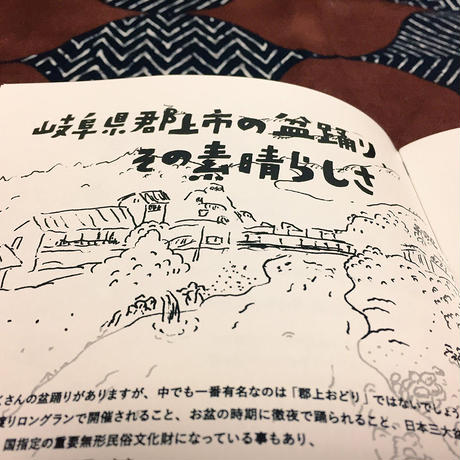 岐阜県郡上市の盆踊り
その素晴らしさ
くさんの盆踊りがありますが、中でも一番有名なのは「郡上おどり」ではないでしょう
渡りロングランで開催されること、お盆の時期に徹夜で踊られること、日本三大盆
国指定の重要無形民俗文化財になっている事もあり、